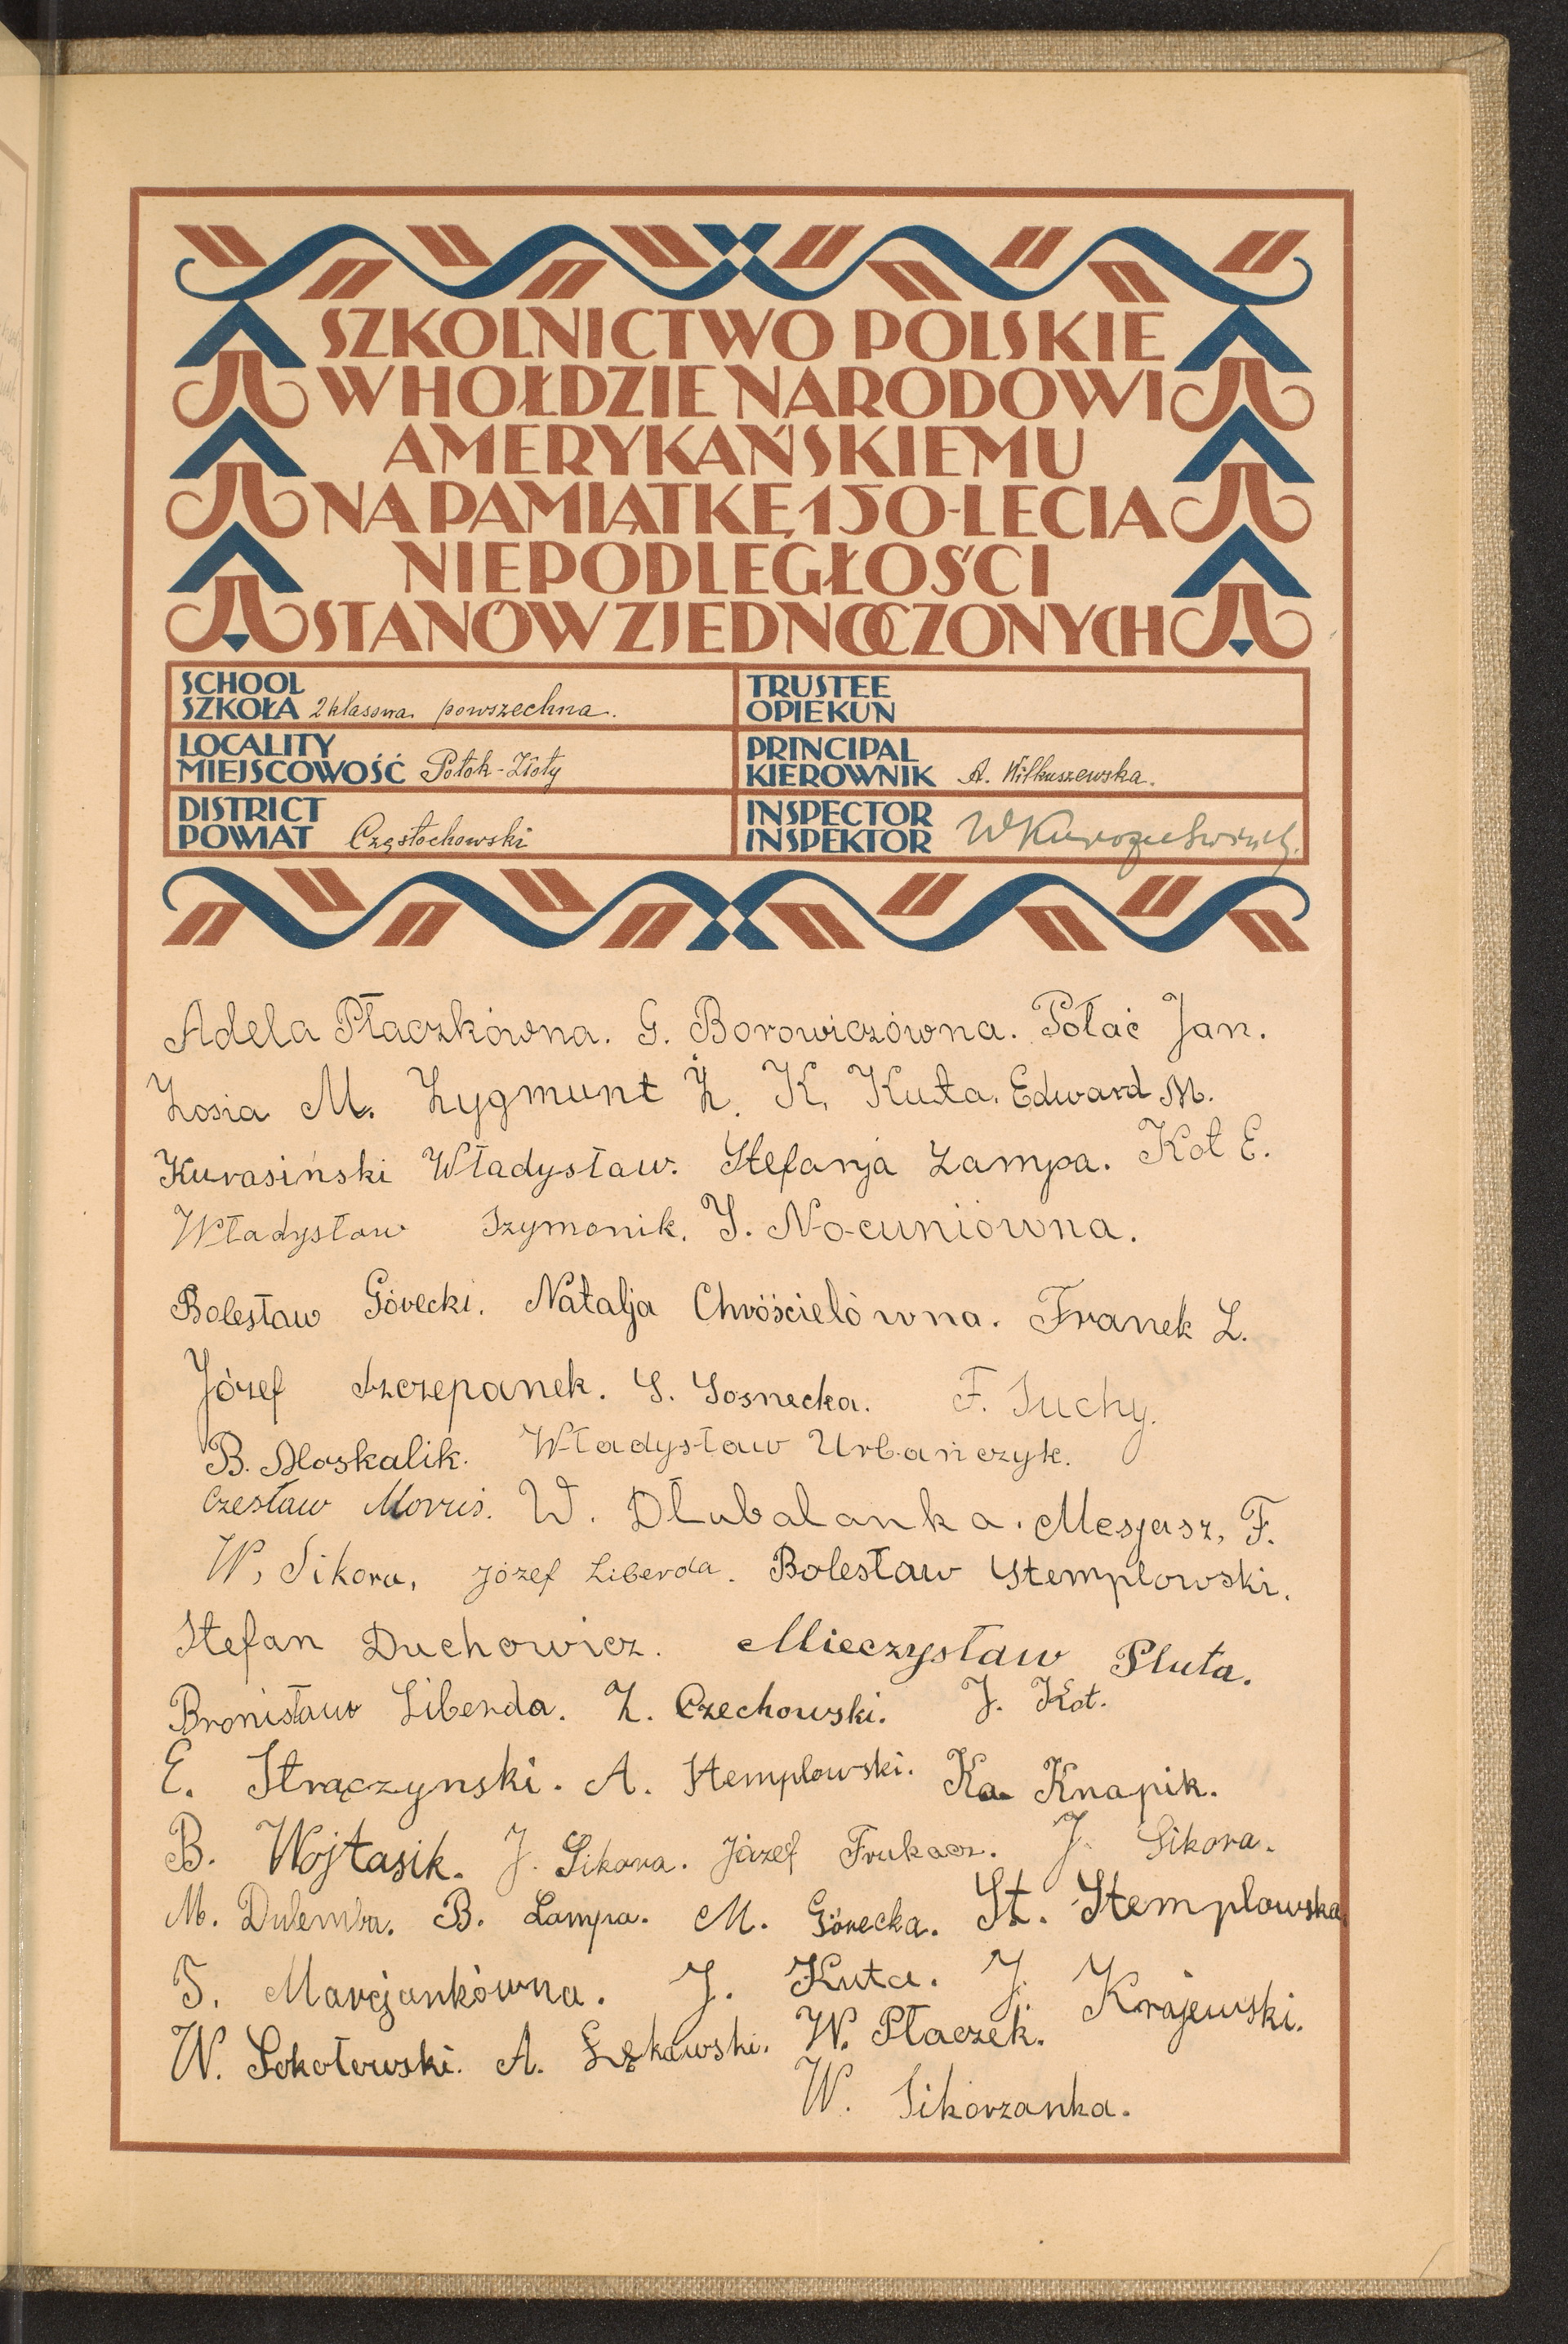 SZKOLNICTWO POLSKIE
W HOŁDZIE NARODOWI
AMERYKAŃSKIEMU
NA PAMIĄTKĘ 150-LECIA
NIEPODLEGŁOŚCI
STANÓW ZJEDNOCZONYCH
SCHOOL
SZKOŁA 2 klasowa powszechna.
LOCALITY
MIEJSCOWOŚĆ Potok-Złoty
DISTRICT
POWIAT Częstochowski
TRUSTEE
OPIEKUN
PRINCIPAL
KIEROWNIK A. Wilkuszewska.
INSPECTOR
INSPEKTOR
Adela Płaczkówna. G. Borowiczówna. Połać Jan.
Zosia M. Zygmunt Ż. K. Kuta. Edward M.
Kurasiński Władysław. Stefanja Lampa. Kot E.
Władysław Szymonik. Y. Nocuniówna.
Bolesław Górecki. Natalja Chróścielówna. Franek L.
Józef Szczepanek. S. Sosnecka. F. Suchy.
B. Moskalik. Władysław Urbańczyk.
Czesław Morus. W. Dłubalanka. Mesjasz, F.
W, Sikora, Józef Liberda. Bolesław Stemplowski.
Stefan Duchowicz. Mieczysław Pluta.
Bronisław Liberda. Z. Czechowski. J. Kot.
E. Strączynski. A. Stemplowski. Ka Knapik.
B. Wojtasik. J. Sikora. Józef Frukacz. J. Sikora.
M. Dulemba. B. Lampa. M. Górecka. St. Stemplowska
T. Marcjankówna. J. Kuta. J. Krajewski.
W. Sokołowski. A. Łękawski. W. Płaczek.
W. Sikorzanka.